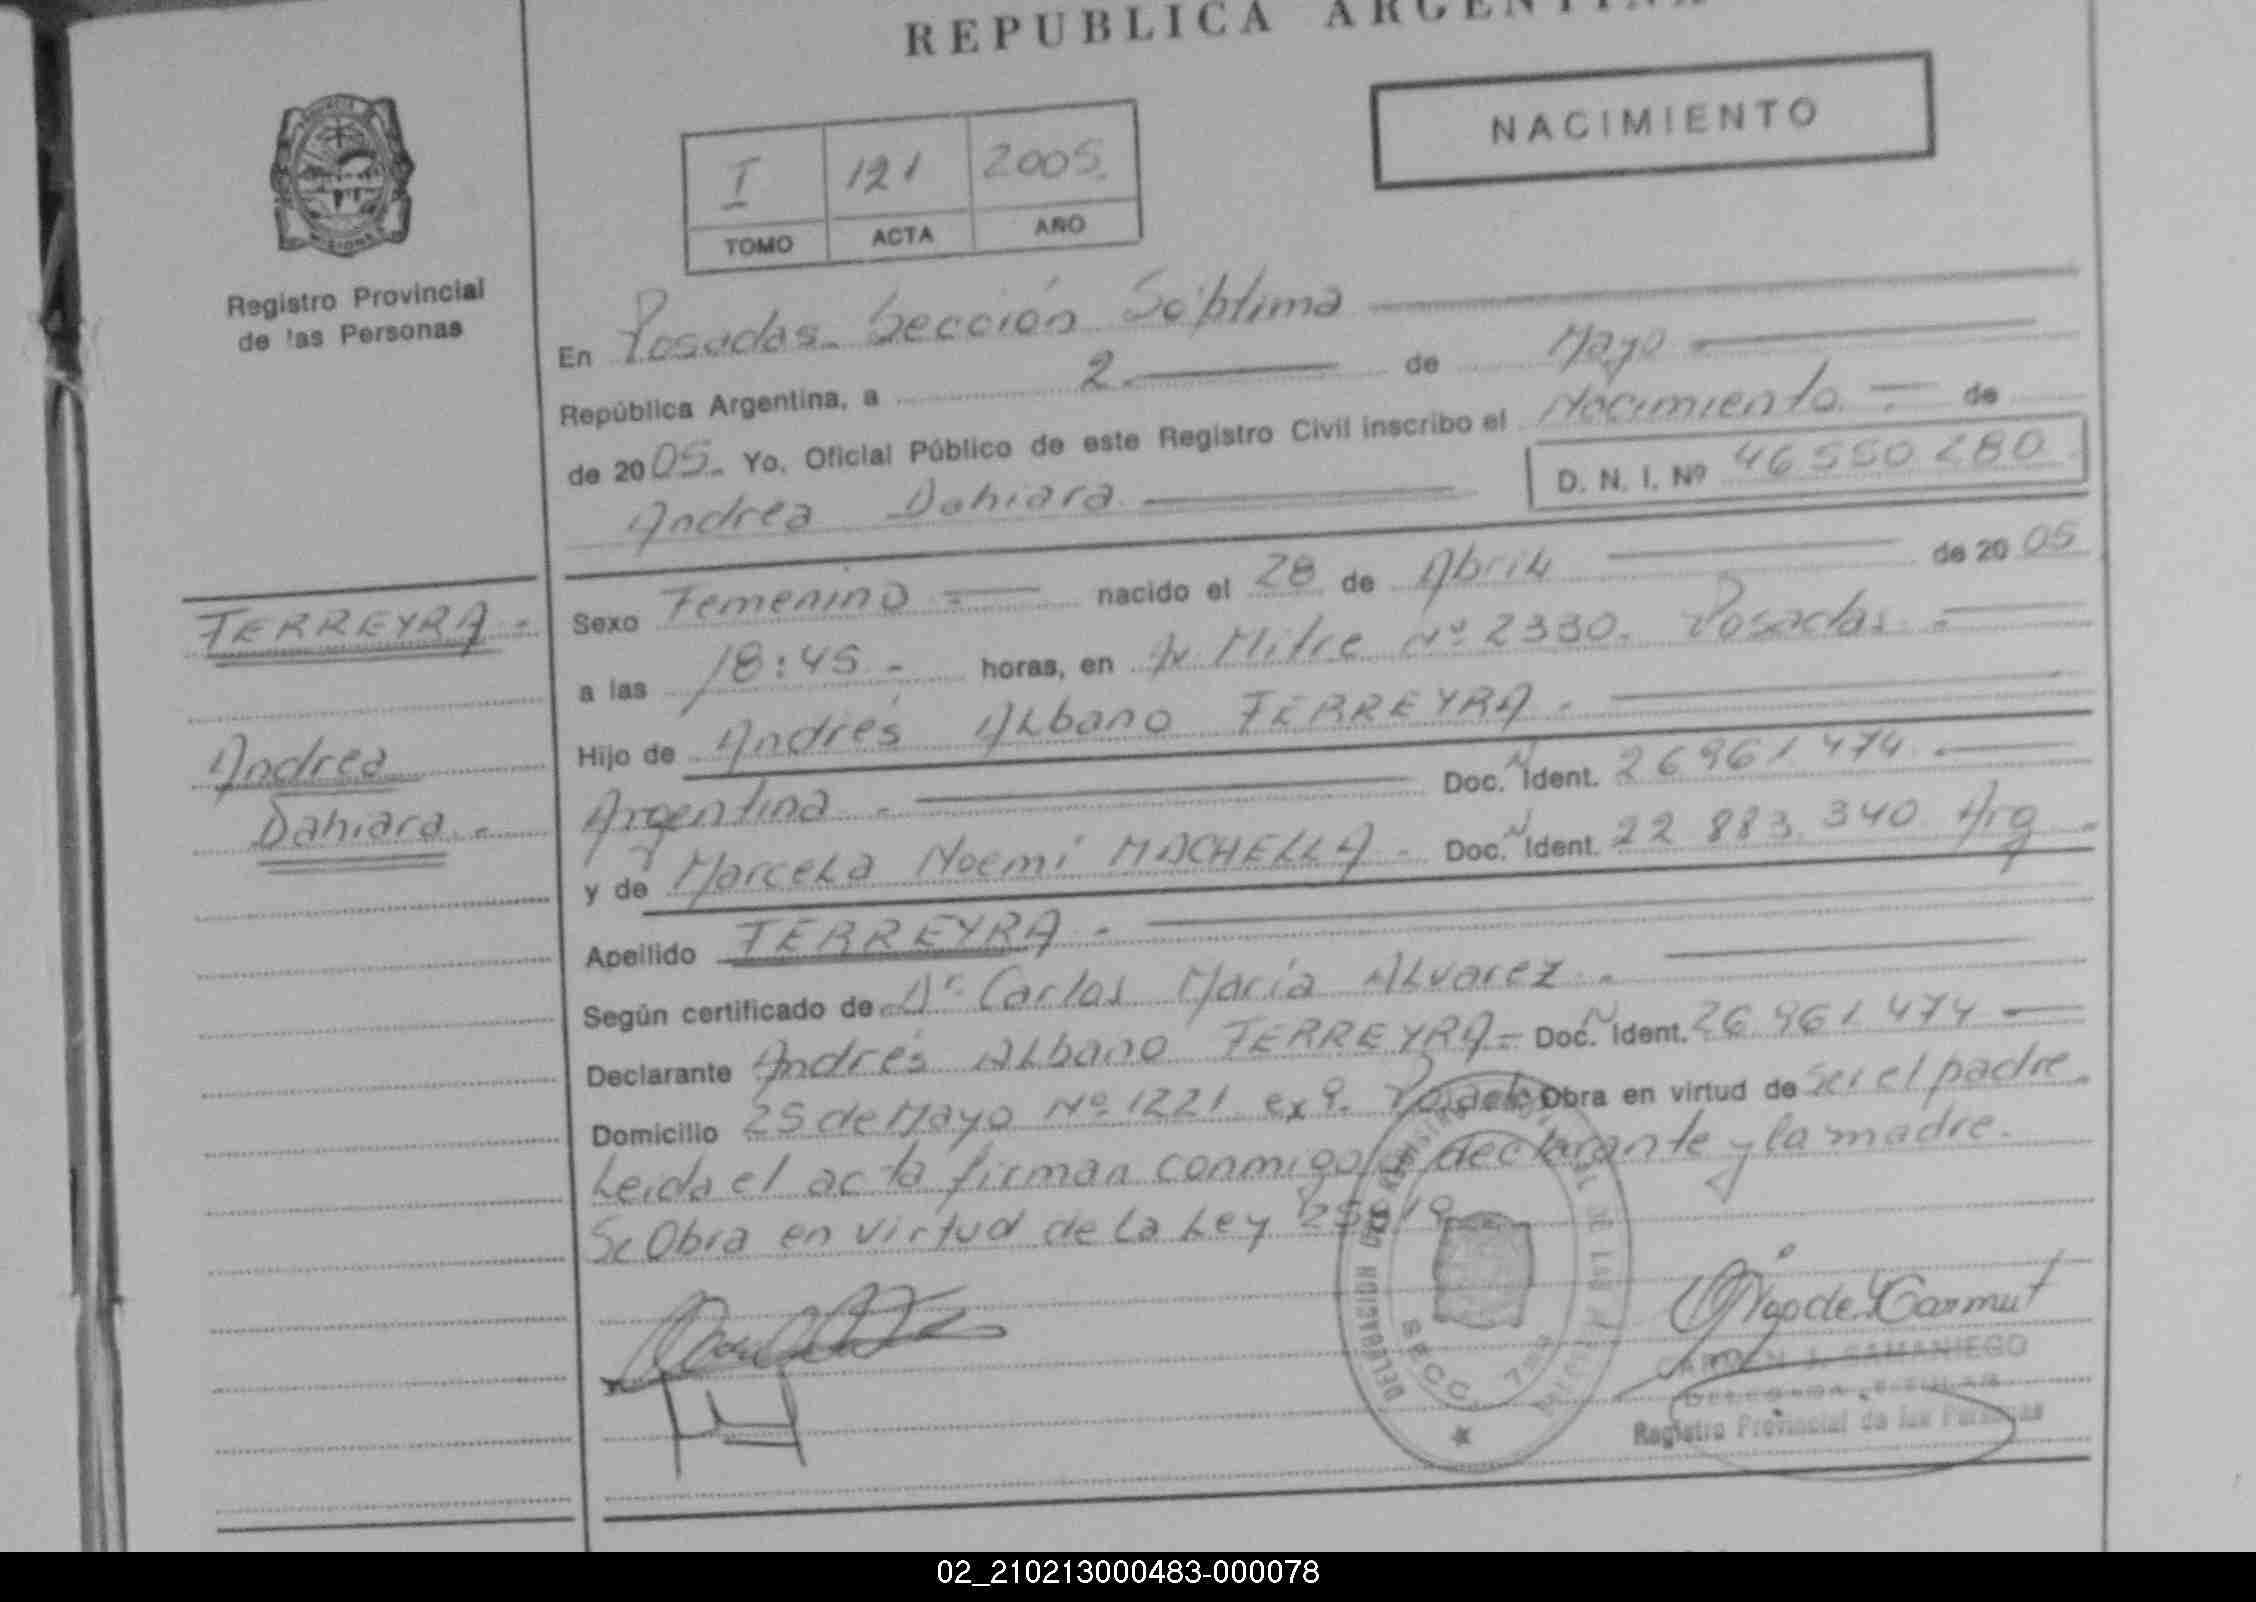 REPUBLICA ARGENTINA
NACIMIENTO
I 121 2005
TOMO ACTA AÑO
Registro Provincial
de las Personas
En Posadas. Sección Séptima
República Argentina, a 2 de Mayo
de 2005. Yo, Oficial Público de este Registro Civil inscribo el Nacimiento de
Andrea Dahiara
D. N. I. Nº 46550280
TERREYRA
Andrea
Dahiara
Sexo Femenino nacido el 28 de Abril de 2005
a las 18:45 horas, en Av Mitre Nº 2330. Posadas
Hijo de Andrés Albano TERREYRA
Argentina Doc. N Ident. 26961474
y de Marcela Noemi MACHELLA Doc. N Ident. 22 883.340 Arg
Apellido TERREYRA
Según certificado de Dr Carlos María Alvarez
Declarante Andrés Albano TERREYRA Doc. N Ident. 26.961.474
Domicilio 25 de Mayo Nº 1221 Obra en virtud de ser el padre
Leida el acta firman conmigo el declarante y la madre.
Se Obra en virtud de la Ley
DELEGACION DEL REGISTRO DE LAS
SECC. 7ma
CARMEN J. SAMANIEGO
Registro Provincial de las Personas
02_210213000483-000078